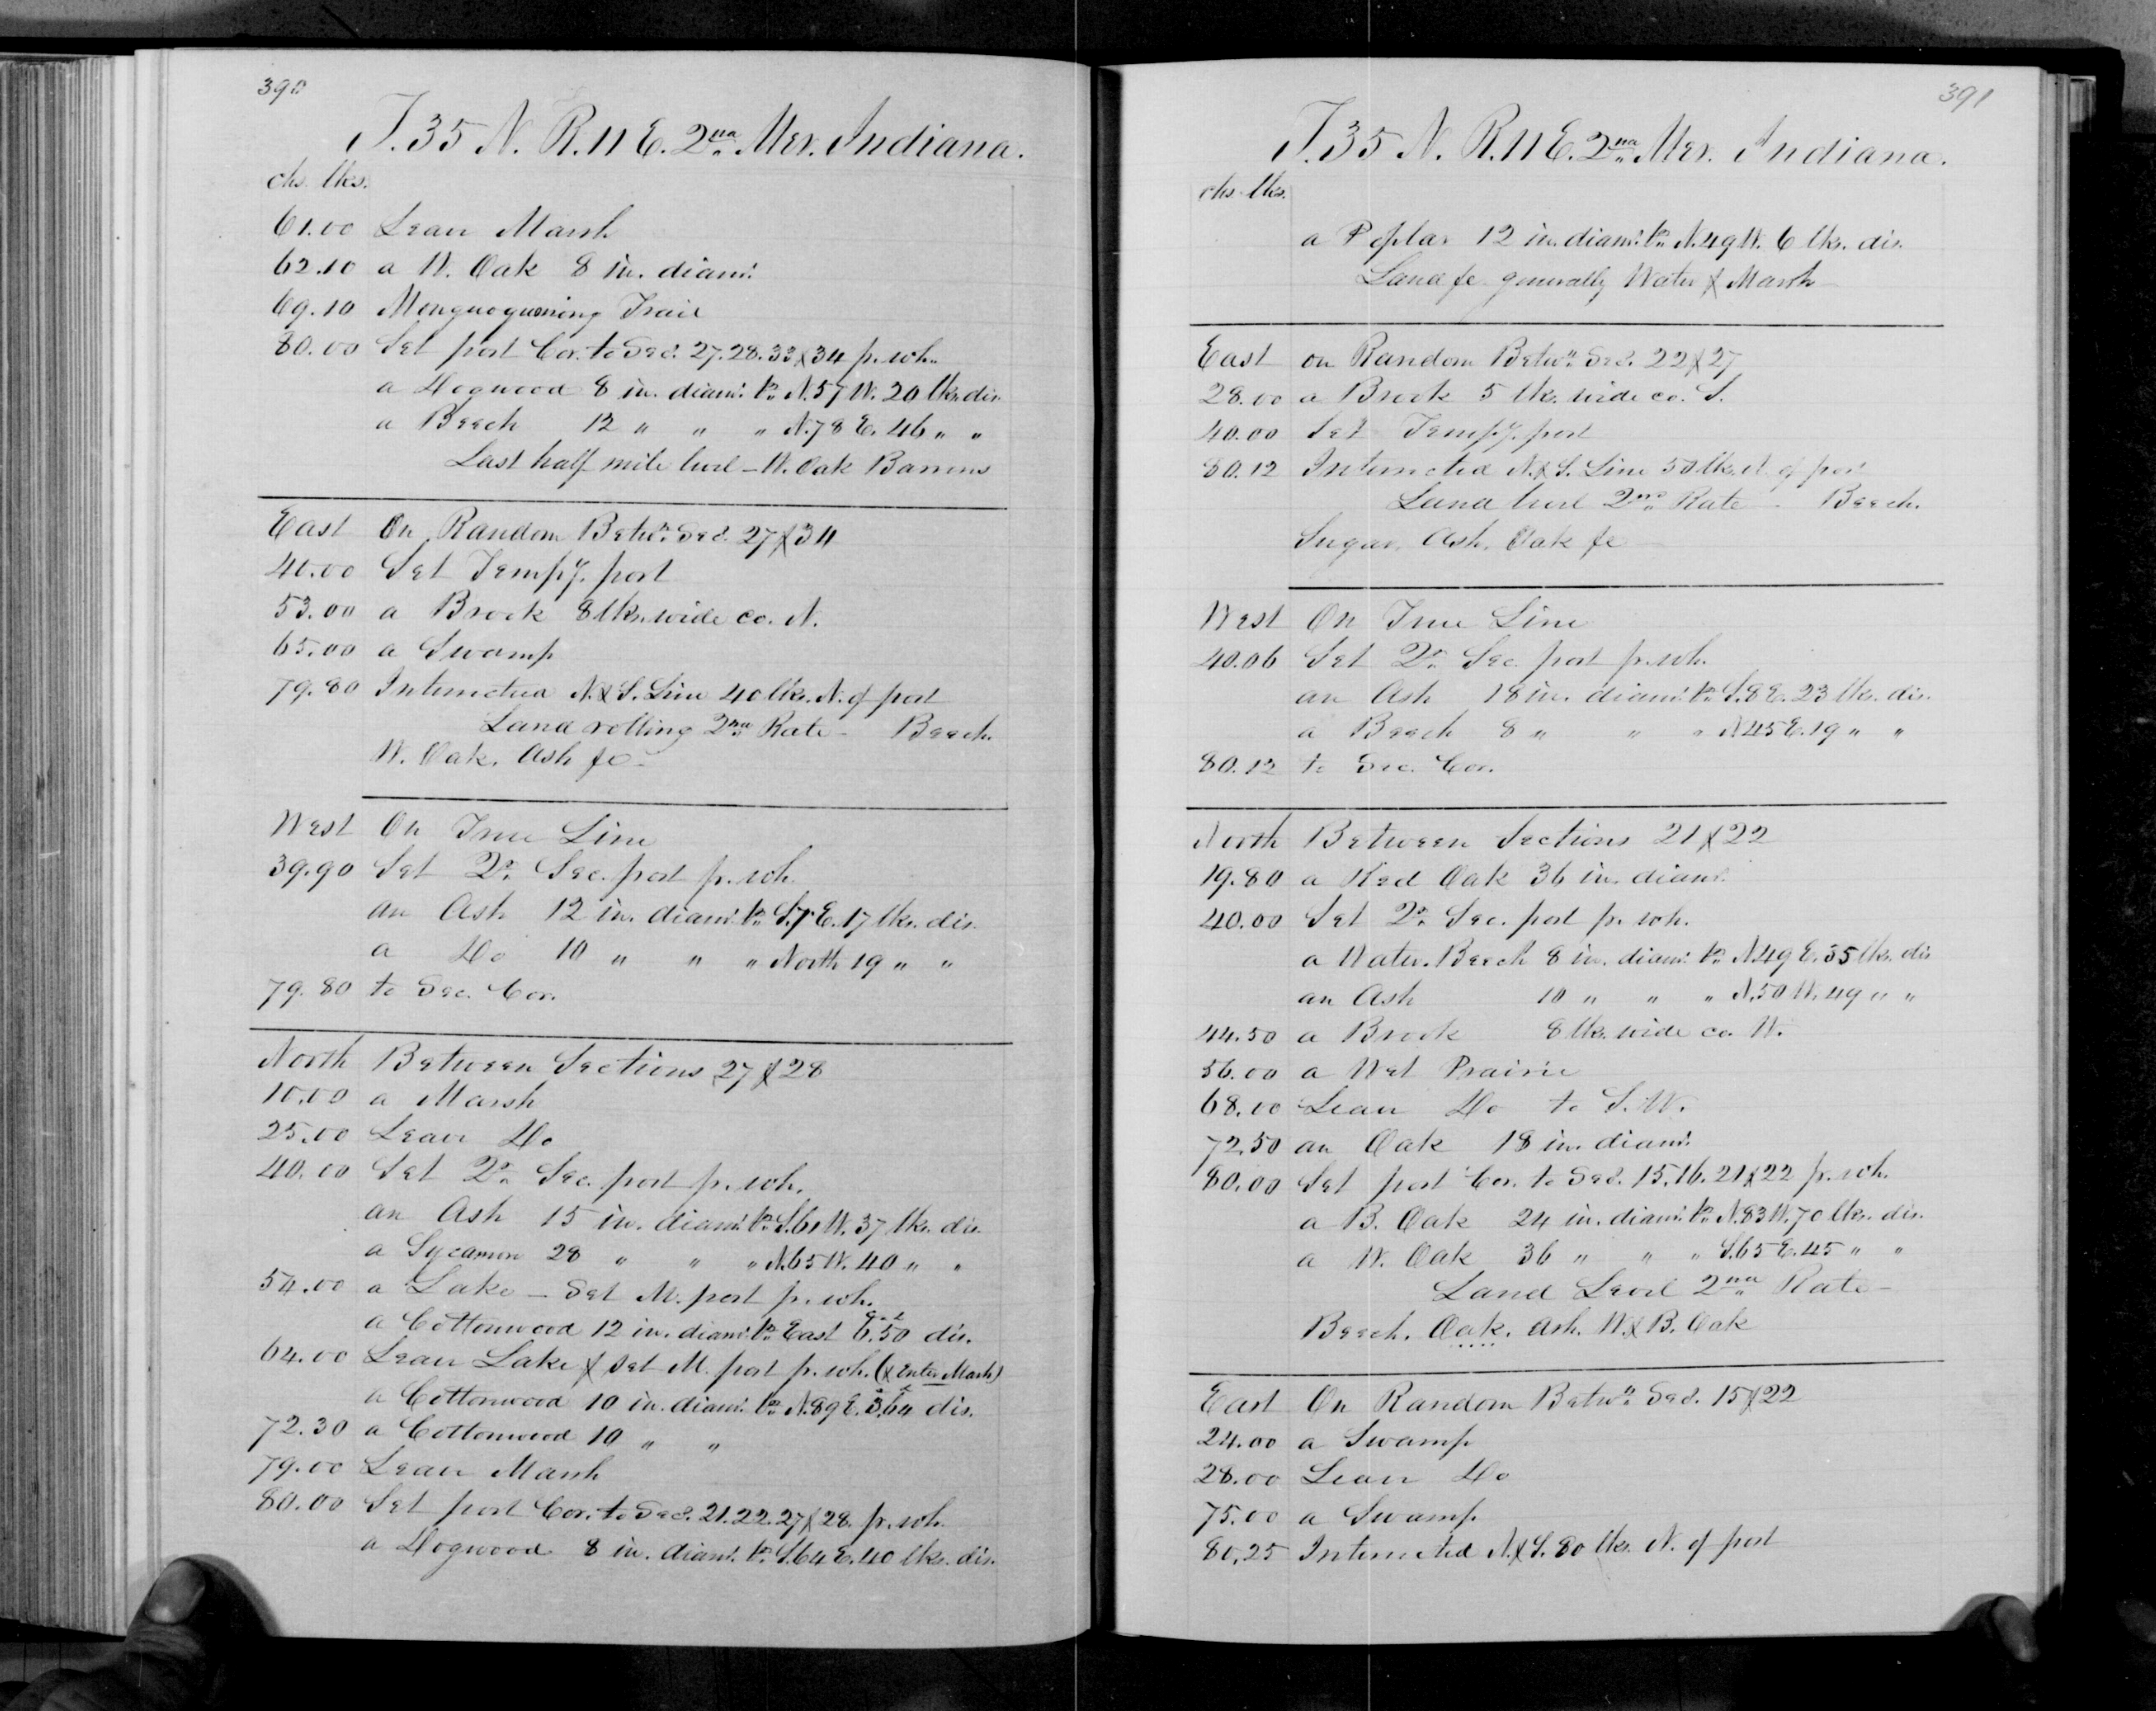 390
T. 35 N. R. 11 E. 2nd Mer. Indiana.
chs. lks.
61.00 Leave Marsh
62.10 a W. Oak 8 in. diamr.
69.10 Trail
80.00 Set post Cor. to Secs. 27. 28. 33 & 34 fr. wh.
a Dogwood 8 in. diamr. brs. N. 57 W. 20 lks. dis.
a Beech 12 " " " N. 78 E. 46 " "
Last half mile level - W. Oak Barrens
East On Random Betwn. Secs. 27 & 34
40.00 Set Tempy. post
53.00 a Brook 8 lks. wide co. N.
65.00 a Swamp
79.80 Intersected N. & S. Line 40 lks. N. of post
Land rolling 2nd Rate - Beech.
W. Oak. Ash &c -
West On True Line
39.90 Set Qr. Sec. post fr. wh.
an Ash 12 in. diamr. brs. S. 7 E. 17 lks. dis.
a Do 10 " " " North 19 " "
79.80 to Sec. Cor.
North Between Sections 27 & 28
10.00 a Marsh
25.00 Leave Do
40.00 Set Qr. Sec. post fr. wh.
an Ash 15 in. diamr. brs. S. 61 W. 37 lks. dis.
a Sycamore 28 " " " N. 65 W. 40 " "
54.00 a Lake - Set M. post fr. wh.
a Cottonwood 12 in. diamr. brs. East 6.50 dis.
64.00 Leave Lake & set M. post fr. wh. (& enter Marsh)
a Cottonwood 10 in. diamr. brs. N. 89 E. 3.64 dis.
72.30 a Cottonwood 10 " "
79.00 Leave Marsh
80.00 Set post Cor. to Secs. 21. 22. 27 & 28. fr. wh.
a Dogwood 8 in. diamr. brs. S. 64 E. 40 lks. dis.
391
T. 35 N. R. 11 E. 2nd Mer. Indiana.
chs. lks.
a Poplar 12 in. diamr. brs. N. 49 W. 6 lks. dis.
Land &c generally Water & Marsh
East on Random Betwn. Secs. 22 & 27
28.00 a Brook 5 lks. wide co. S.
40.00 Set Tempy. post
80.12 Intersected N. & S. Line 50 lks. N. of post
Land level 2nd Rate - Beech.
Sugar, Ash, Oak &c
West On True Line
40.06 Set Qr. Sec. post fr. wh.
an Ash 18 in. diamr. brs. S. 8 E. 23 lks. dis.
a Beech 8 " " " N. 45 E. 19 " "
80.12 to Sec. Cor.
North Between Sections 21 & 22
19.80 a Red Oak 36 in. diamr.
40.00 Set Qr. Sec. post fr. wh.
a Water Beech 8 in. diamr. brs. N. 49 E. 35 lks. dis
an Ash 10 " " " N. 50 W. 49 " "
44.50 a Brook 8 lks. wide co. W.
56.00 a Wet Prairie
68.00 Leave Do to S. W.
72.50 an Oak 18 in. diamr.
80.00 Set post Cor. to Secs. 15. 16. 21 & 22 fr. wh.
a B. Oak 24 in. diamr. brs. N. 83 W. 70 lks. dis.
a W. Oak 36 " " " S. 65 E. 45 " "
Land Level 2nd Rate -
Beech. Oak. Ash. W. & B. Oak
East On Random Betwn. Secs. 15 & 22
24.00 a Swamp
28.00 Leave Do
75.00 a Swamp
80.25 Intersected N. & S. 80 lks. N. of post